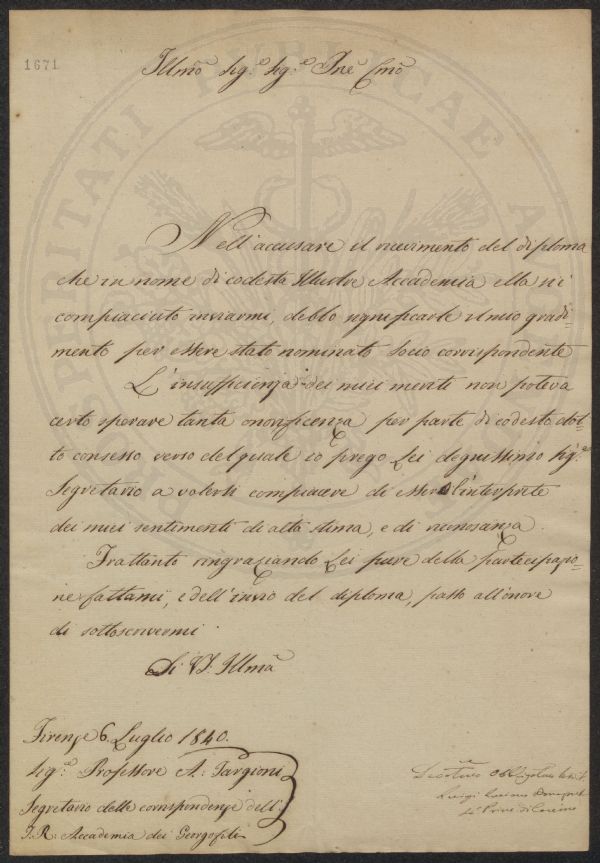 1671
Illmo Sig.e Sig.e Pne Cmo
Nell'accusare il ricevimento del diploma
che in nome di codesta Illustre Accademia ella si
compiaciuto inviarmi, debbo significarle il mio gradi-
mento per essere stato nominato Socio corrispondente
L'insufficienza dei miei meriti non poteva
certo sperare tanta onorificenza per parte di codesto dot-
to consesso verso del quale io prego Lei degnissimo Sig.e
Segretario a volersi compiacere di essere l'interprete
dei miei sentimenti di alta stima, e di riconosanza.
Frattanto ringraziando Lei pure della Partecipazio-
ne fattami, e dell'invio del diploma, passo all'onore
di sottoscrivermi
Di V.S. Illma
Firenze 6 Luglio 1840.
Sig.e Professore A. Targioni
Segretario delle corrispondenze dell'
I. R. Accademia dei Georgofili
Luigi Luciano Bonaparte
PROSPERITATI PUBLICAE